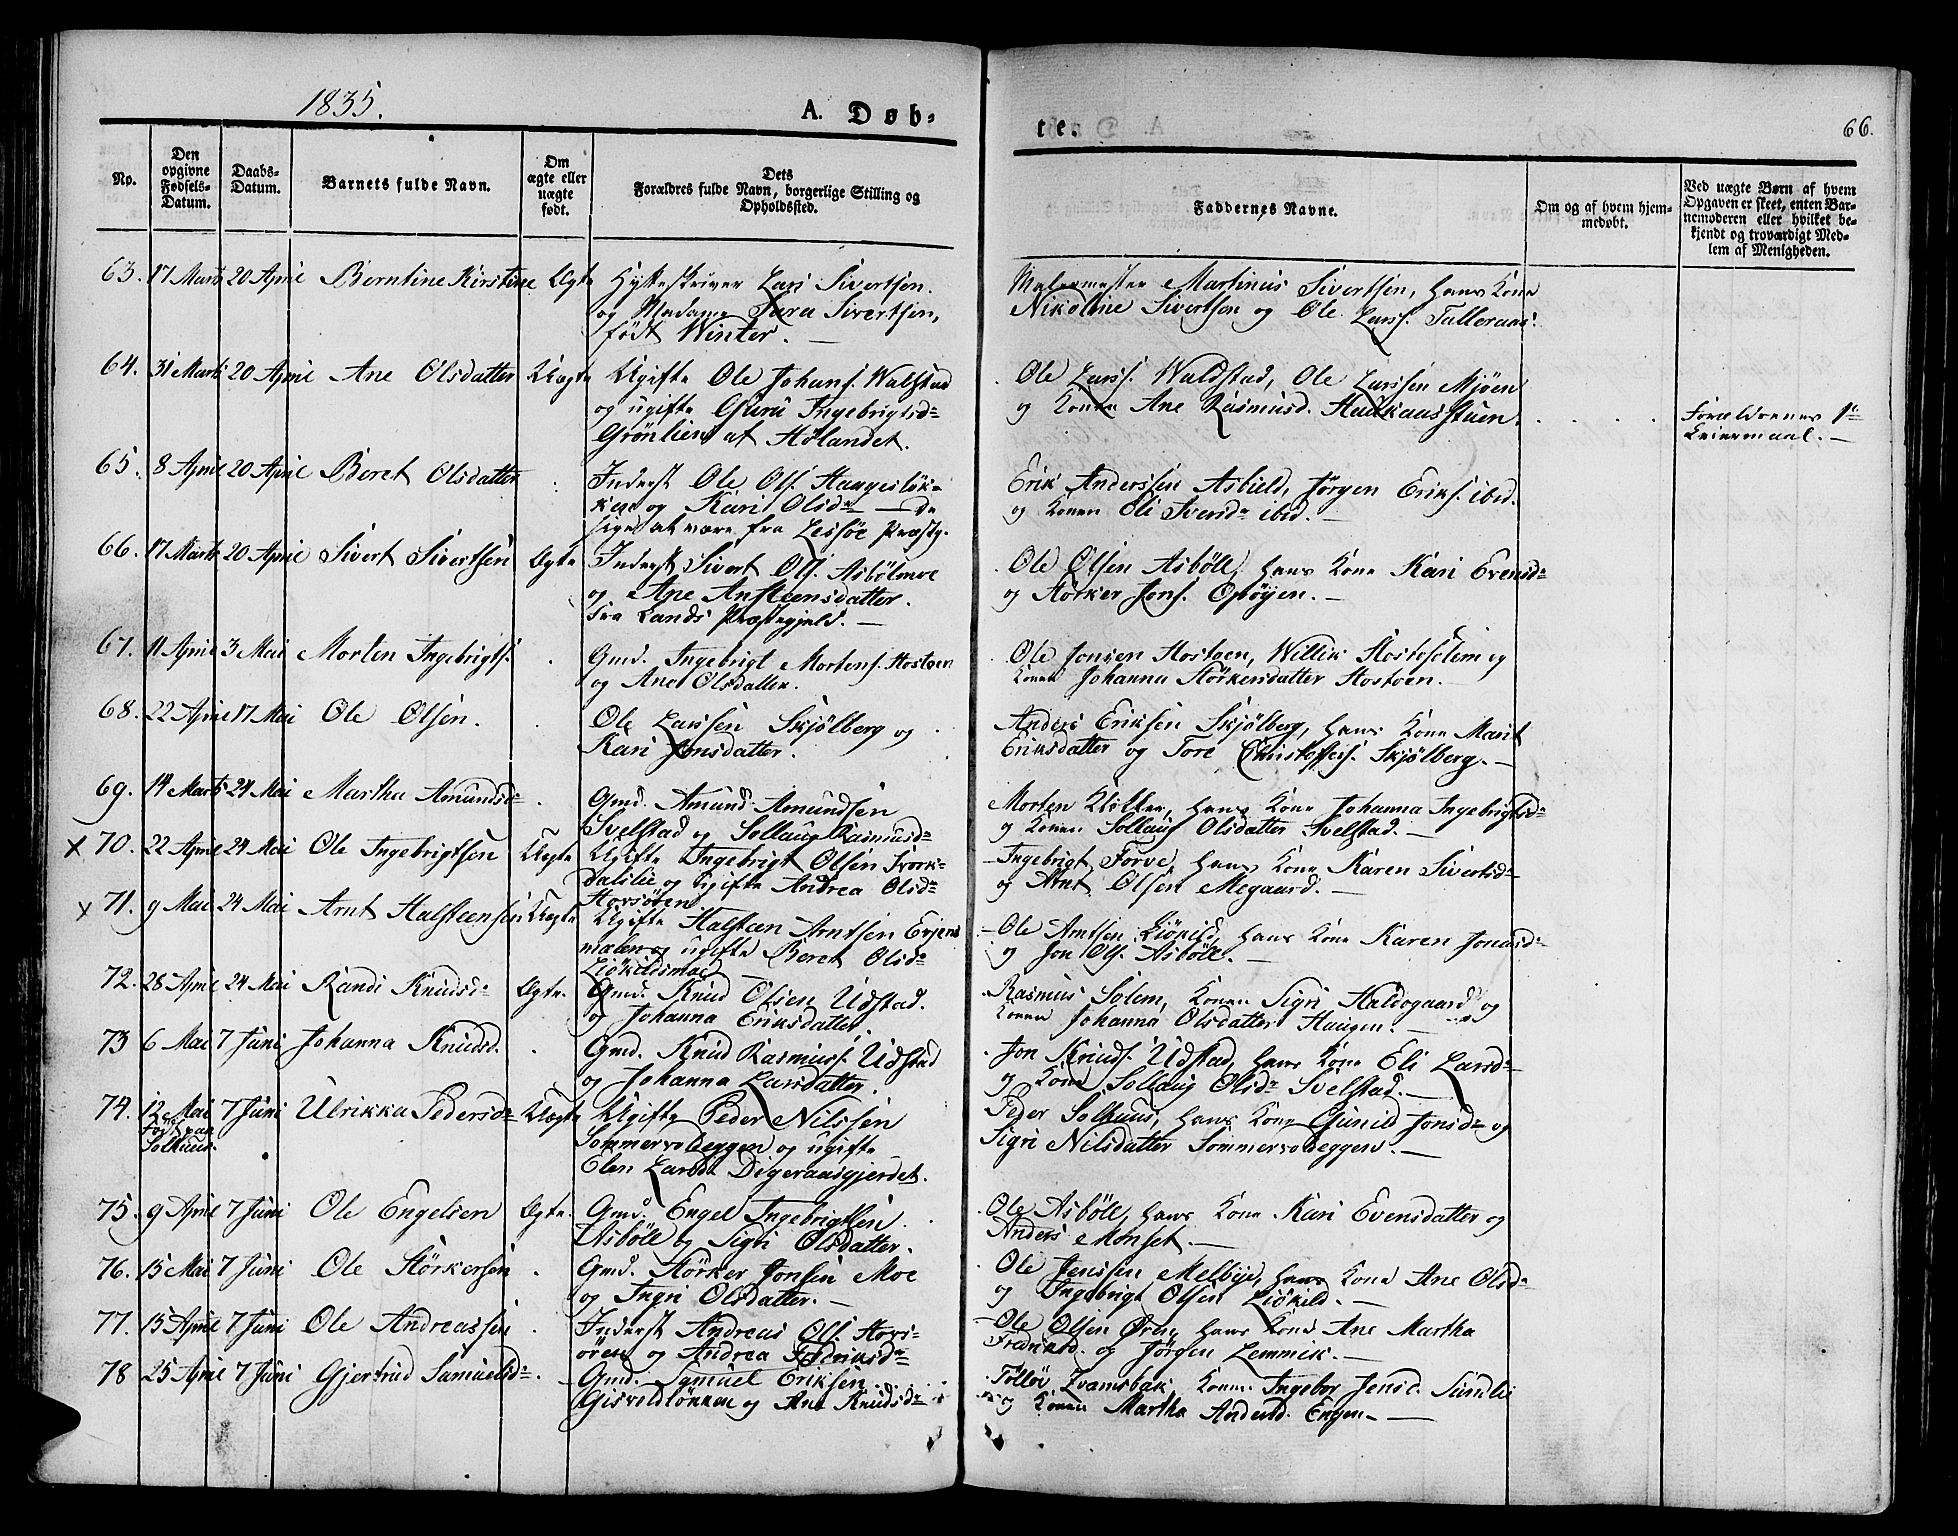 1835.
A. Døb-
te.
66.
No.
Den opgivne Fødsels-Datum.
Daabs-Datum.
Barnets fulde Navn.
Om ægte eller uægte født.
Dets Forældres fulde Navn, borgerlige Stilling og Opholdssted.
Faddernes Navne.
Om og af hvem hjem-medøbt.
Ved uægte Børn af hvem Opgaven er skeet, enten Bar-nemoderen eller hvilket be-kjendt og troværdigt Med-lem af Menigheden.
63. 17 Marts 20 April Berntine Kirstine Ægte Hytteskriver Lars Sivertsen
og Madame Sara Sivertsen,
født Winter. —
Malermester Martinus Sivertsen, hans Kone
Nikoline Sivertsen og Ole Larss. Talleraas.
64. 31 Marts 20 April Ane Olsdatter Uægte Ugifte Ole Johans. Walstad
og ugifte Guru Ingebrigtsd.
Grönlien af Hölandet.
Ole Larss. Waldstad, Ole Larssen Mjøen
og Konen Ane Rasmusd. Haukaasstuen.
Forældrenes 1ste
Leiermaal. —
65. 8 April 20 April Beret Olsdatter Inderst Ole Ols. Haugeslök-
ken og Kari Olsdr — de
siges at være fra Lessöe Præstg.
Erik Anderssen Asbield, Jørgen Eriks. ibid.
og Konen Eli Iversdr ibid. —
66. 17 Marts 20 April Sivert Sivertsen Ægte Inderst Sivert Ols. Asbölmoe
og Ane Ansteensdatter.
fra Lands Præstegjeld. —
Ole Olsen Asböll, hans Kone Kari Evensdr
og Störker Jons. Opöyen. —
67. 11 April 3 Mai Morten Ingebrigts. Gmd. Ingebrigt Mortens. Hostoen
og Ane Olsdatter.
Ole Jonsen Hostoen, Willik Hostoselim og
Konen Johanna Störkersdatter Hostoen. —
68. 22 April 17 Mai Ole Olsen. Ole Larssen Skjölberg og
Kari Jonsdatter.
Anders Eriksen Skjölberg, hans Kone Marit
Eriksdatter og Tore Christoffers. Skjölberg. —
69. 14 Marts 24 Mai Martha Amundsdr Gmd. Amund Amundsen
Svelstad og Sollaug Rasmusdr
Morten Klöller, hans Kone Johanna Ingebrigtsdr
og Konen Sollaug Olsdatter Svelstad. —
x 70. 22 April 24 Mai Ole Ingebrigtsen Uægte Ugifte Ingebrigt Olsen Svork-
dalslie og Ugifte Andrea Olsdr
Hovsören
Ingebrigt Forve, hans Kone Karen Sivertsdr
og Arnt Olsen Megaard. —
x 71. 9 Mai 24 Mai Arnt Halsteensen Uægte Ugifte Halsteen Arntsen Evjens
malen og ugifte Beret Olsdr
Liökildsmoe
Ole Arntsen Liökild, hans Kone Karen Jonasdr
og Jon Ols. Asböll. —
72. 28 April 24 Mai Randi Knudsdr Ægte. Gmd. Knud Olsen Udstad.
og Johanna Eriksdatter
Rasmus Solem, Konen Sigri Haldogaard og
Konen Johanna Olsdatter Haugen. —
73 6 Mai 7 Juni Johanna Knudsd. Gmd. Knud Rasmuss. Udstad
og Johanna Larsdatter.
Jon Knuds. Udstad, hans Kone Eli Larsdr
og Kone Sollaug Olsdr Svelstad. —
74. 12 Mai 7 Juni Ulrikka Pedersdr Uægte Ugifte Peder Nilssen
Født paa
Solhuus.
Sommervoldeggen og ugifte
Elen Larsdr Digeraasgjerdet.
Peder Solhuus, hans Kone Gunild Jonsdr og
Sigri Nilsdatter Sommervoldeggen. —
75. 9 April 7 Juni Ole Engelsen Ægte. Gmd. Engel Ingebrigtsen
Asböll og Sigri Olsdatter.
Ole Asböll, hans Kone Kari Evensdatter og
Anders Monset. —
76. 15 Mai 7 Juni Ole Störkersen Gmd. Störker Jonsen Moe
og Ingri Olsdatter. —
Ole Jenssen Melbye, hans Kone Ane Olsdr
og Ingebrigt Olsen Liökild. —
77. 15 April 7 Juni Ole Andreassen Inderst Andreas Ols. Hovs-
ören og Andrea Fredriksdr
Ole Olsen Øren, hans Kone Ane Martha
Fredriksd. og Jörgen Lemmik. —
78 25 April 7 Juni Gjertrud Samuelsdr Gmd. Samuel Eriksen
Gisvoldlökken og Ane Knudsdr
Tollöv Kvamsbak, Konen Ingebor Jensd. Sundlie
og Konen Martha Andersd. Engen. —